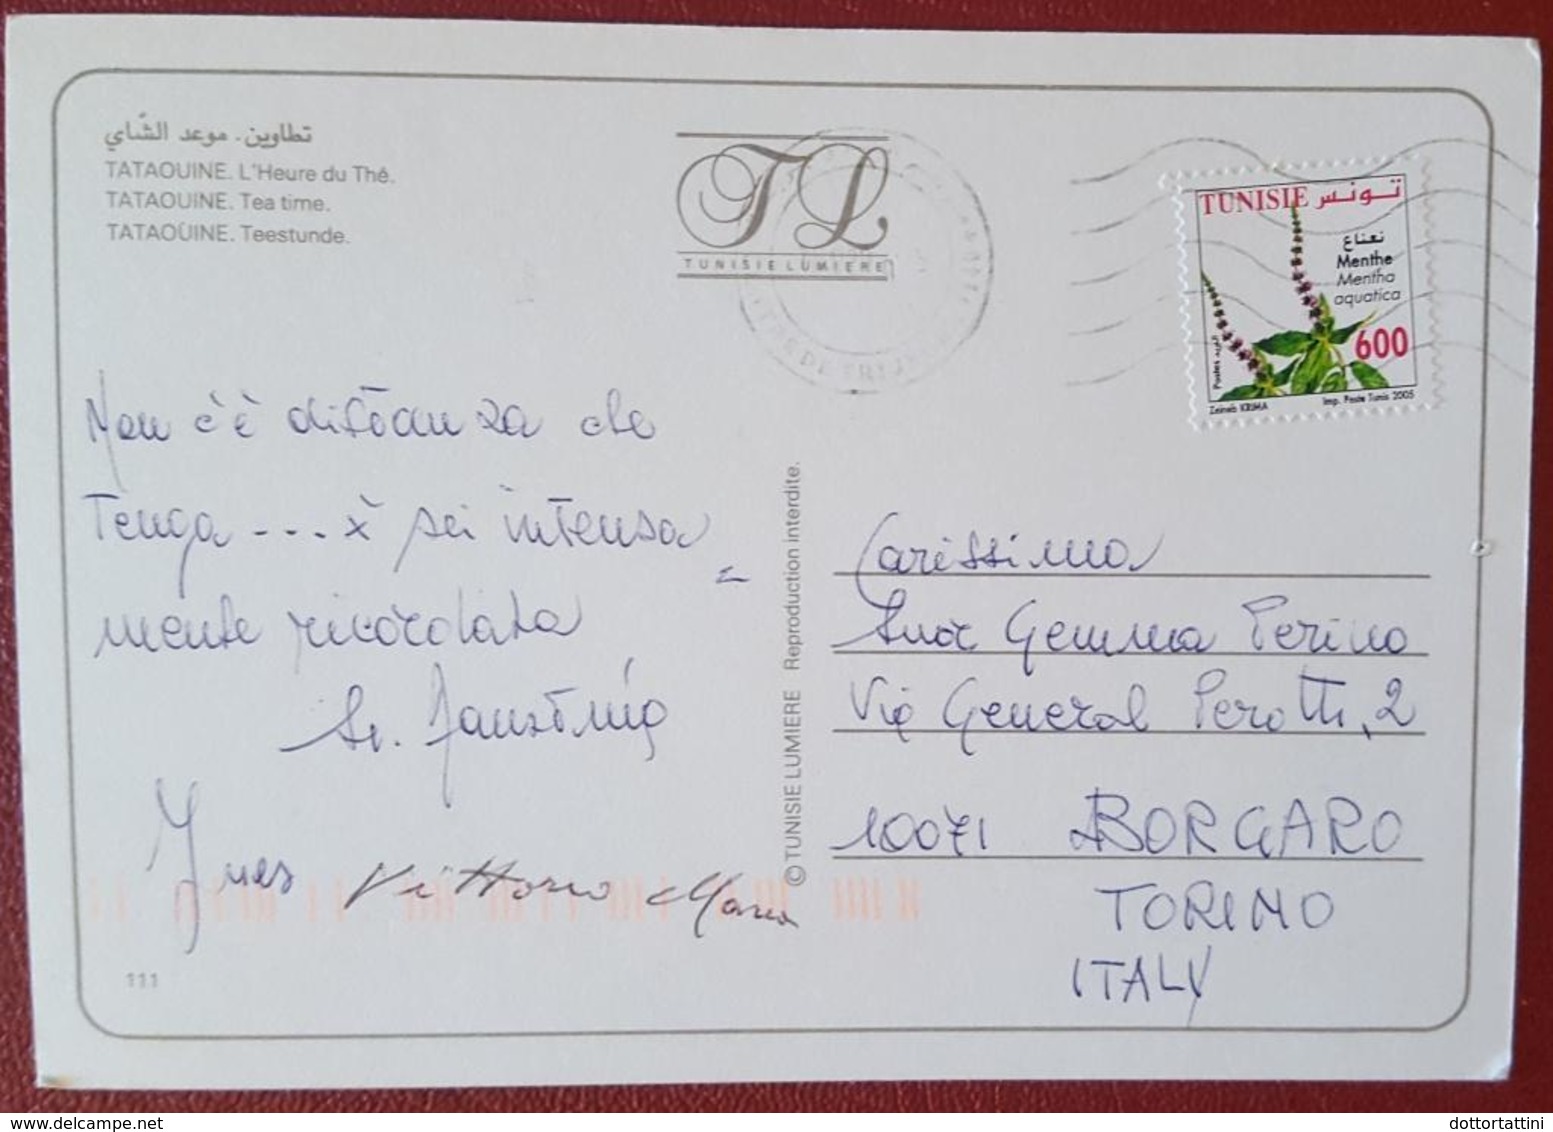 تطاوين. موعد الشّاي
TATAOUINE. L'Heure du Thé.
TATAOUINE. Tea time.
TATAOUINE. Teestunde.
TL
TUNISIE LUMIERE
TUNISIE تونس
نعناع
Menthe
Mentha
aquatica
600
Postes البريد
Zeineb KRIMA
Imp. Poste Tunis 2005
Non c'è distanza che
tenga ... x sei intensa
mente ricordata
Sr. Faustina
Ynes Vittorio Maria
111
© TUNISIE LUMIERE Reproduction interdite.
Carissima
Suor Gemma Perino
Via General Perotti, 2
10071 BORGARO
TORINO
ITALY
delcampe.net
dottortattini